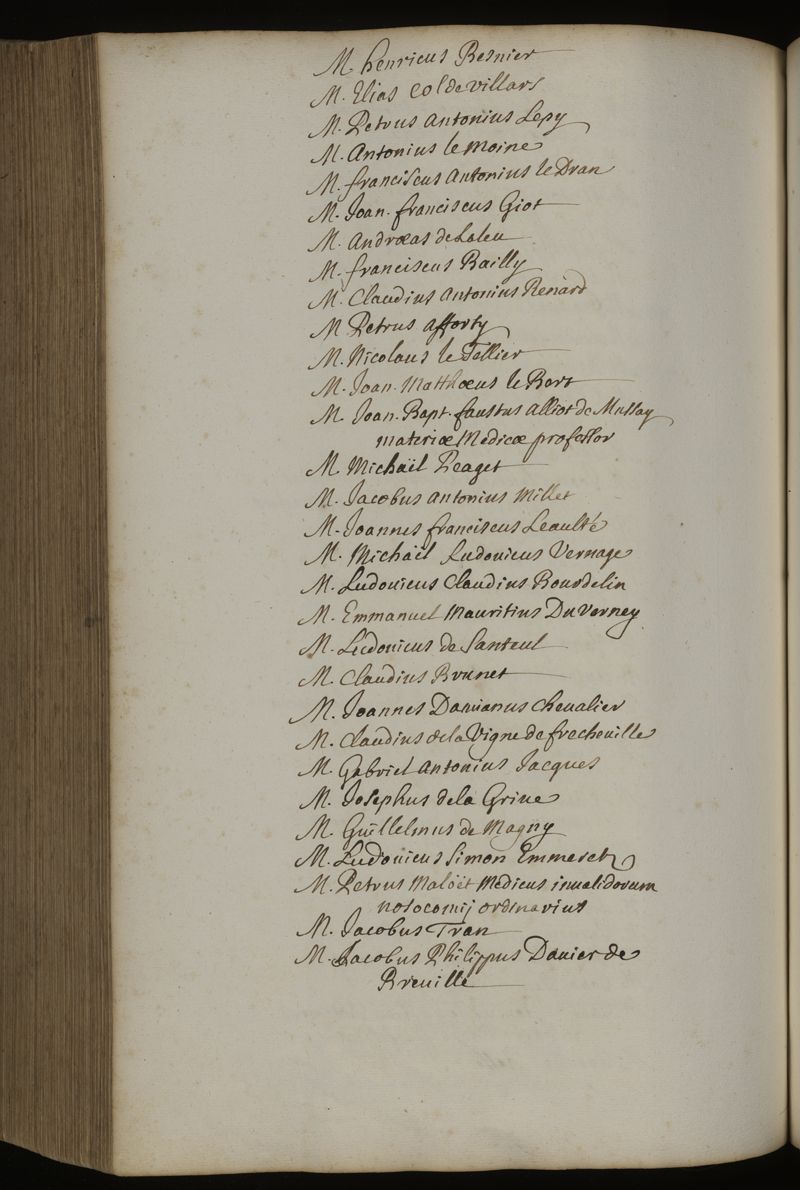 M. henricus Besnier
M. Elias Col de Villars
M. Petrus Antonius Lepy
M. Antonius le Moine
M. franciscus Antonius le Dran
M. Joan. franciscus Giot
M. Andræas de Laleu
M. franciscus Bailly
M. Claudius Antonius Renard
M Petrus Afforty
M. Nicolaus le Tellier
M. Joan. Matthæus le Bert
M. Joan. Bapt. faustus Alliot de Mussay
materiæ Medicæ professor
M. Michaël Peaget
M. Jacobus Antonius Millet
M. Joannes franciscus Leaulté
M. Michaël Ludovicus Vernage
M. Ludouicus Claudius Bourdelin
M. Emmanuel Mauritius Du Verney
M. Ludouicus de Santeul
M. Claudius Brunet
M. Joannes Damianus Cheualier
M. Claudius de la Vigne de frecheuille
M. Gabriel Antonius Jacques
M. Josephus de la Griue
M. Guillelmus de Magny
M. Ludouicus Simon Emmeret
M. Petrus Maloët Medicus inualidorum
nosocomij ordinarius
M. Jacobus Tran
M. Jacobus Philippus Dauier de
Breuille